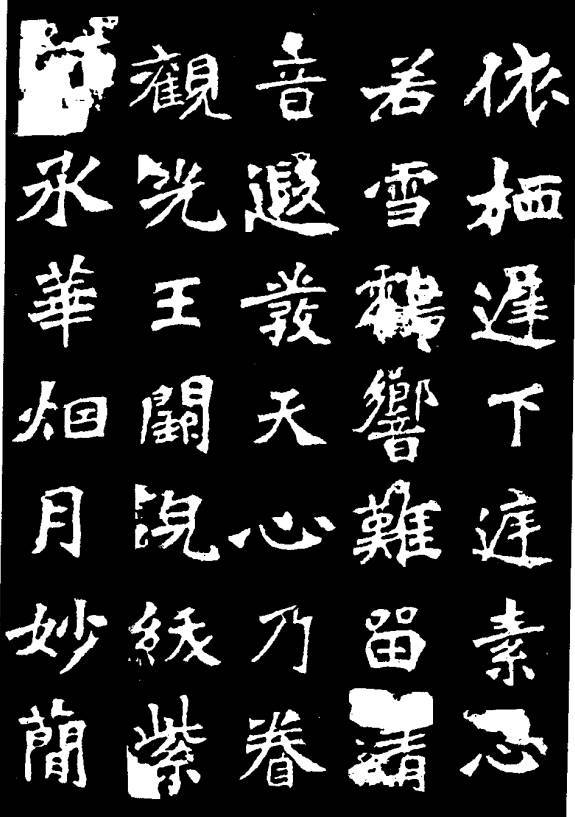 依栖遲下庭素心
若雪鶴響難留清
音遐發天心乃眷
觀光王闕紱紫
承華烟月妙簡